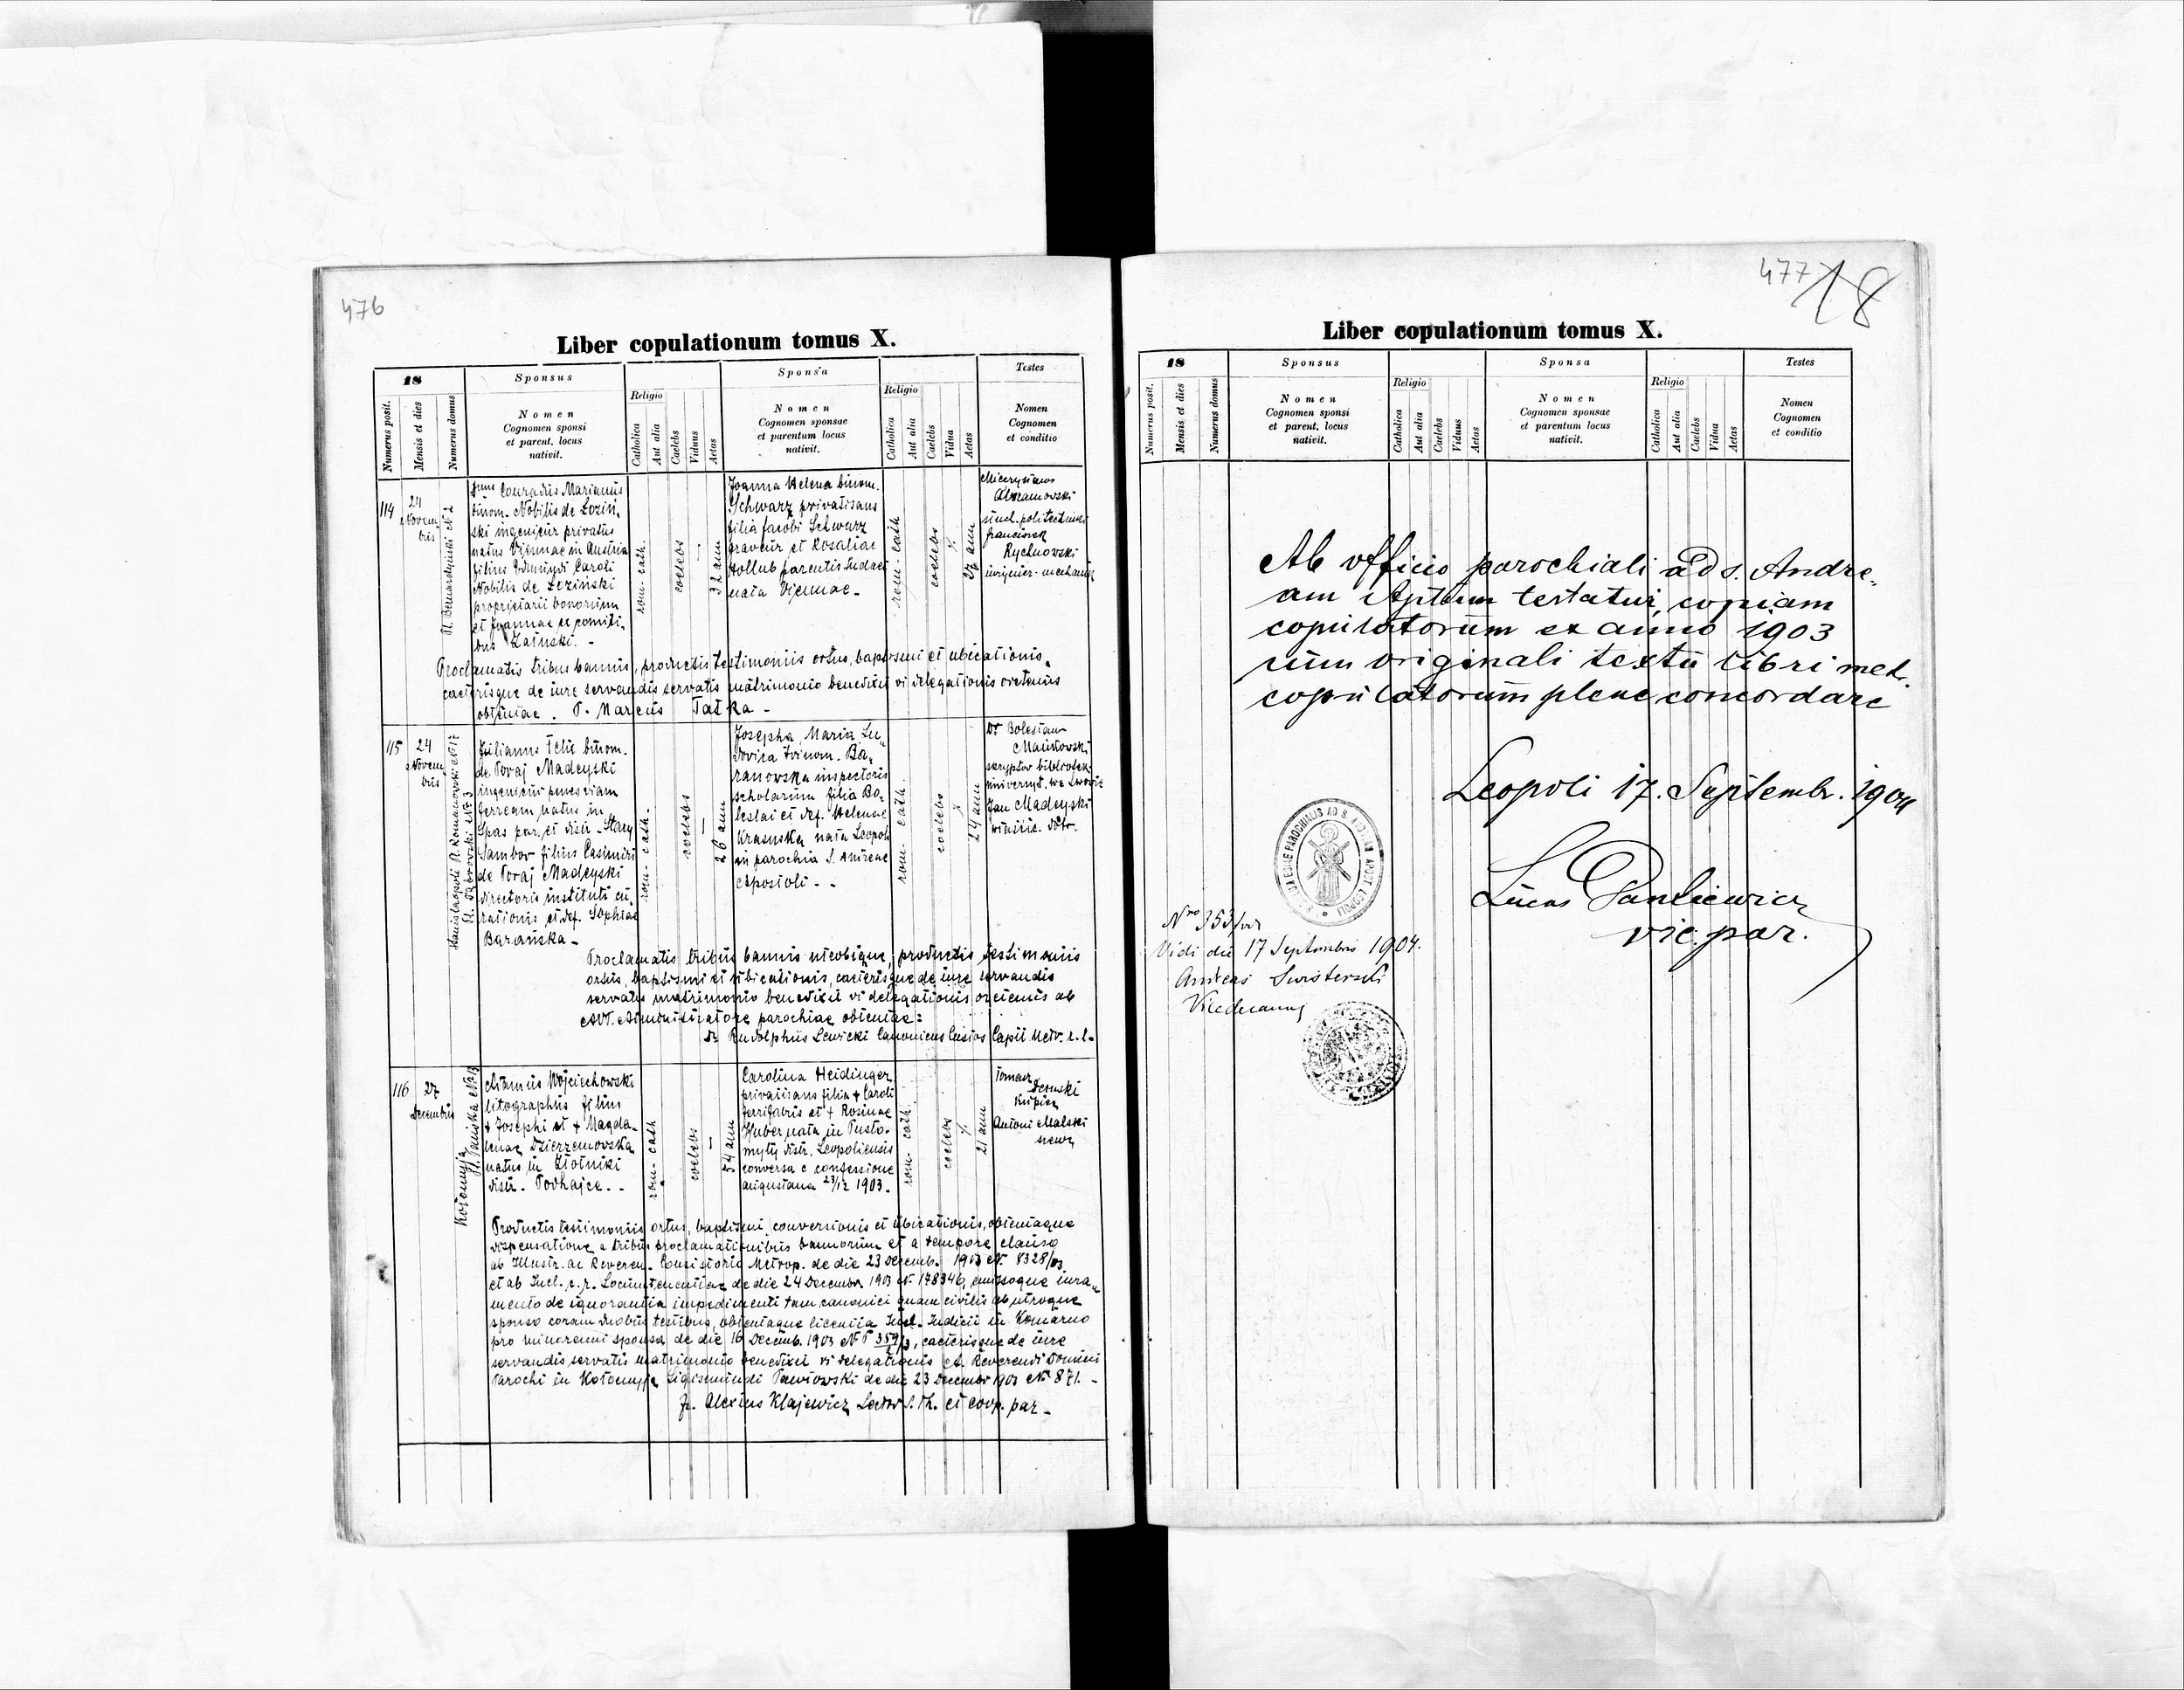 476
Liber copulationum tomus X.
18
Sponsus
Sponsa
Testes
Numerus posit.
Mensis et dies
Numerus domus
Nomen
Cognomen sponsi
et parent. locus
nativit.
Religio
Catholica
Aut alia
Caelebs
Viduus
Aetas
Nomen
Cognomen sponsae
et parentum locus
nativit.
Religio
Catholica
Aut alia
Caelebs
Vidua
Aetas
Nomen
Cognomen
et conditio
114
24
Novem
bris
Pl. Bernardyński N 2
Conradus Marianus
binom. Nobilis de Łoziń,
ski ingenieur privatus
natus Viennae in Austria
filius Edmundi Caroli
Nobilis de Łoziński
proprietarii bonorum
et Joannae de comiti,
bus Załuski. -
rom. cath.
coelebs
32 ann
Joanna Helena binom.
Schwarz privatisans
filia Jacobi Schwarz
graveur et Rosaliae
Hollub parentis Judaei
nata Viennae -
rom. cath
coelebs
27 ann
Mieczysław
Abramowski
stud. politechniki
Franciszek
Rychnowski
inżynier-mechanik
Proclamatis tribus bannis, productis testimoniis ortus, baptismi et ubicationis,
caeterisque de iure servandis servatis matrimonio benedixit vi delegationis oretenus
obtentae. P. Marcus Tatka -
115
24
Novem
bris
Stanislaopoli Pl. Romanowski N 17
Pl. Dąbrowski N 3
Julianus Felix binom.
de Poraj Madeyski
ingenieur penes viam
ferream natus in
Spas par. et distr. Stary
Sambor filius Casimiri
de Poraj Madeyski
directoris instituti cu,
rationis et def. Sophiae
Barańska -
rom. cath.
coelebs
26 ann
Josepha Maria Lu,
dovica trinom. Ba,
ranowska inspectoris
scholarum filia Bo,
leslai et def. Helenae
Krasuska nata Leopoli
in parochia S. Andreae
Apostoli - -
rom. cath.
coelebs
24 ann
Dr Bolesław
Mańkowski
skryptor bibliotek.
uniwersyt. we Lwowie
Jan Madeyski
właśc. dóbr.
Proclamatis tribus bannis utrobique, productis testimoniis
ortus, baptismi et ubicationis, caeterisque de iure servandis
servatis matrimonio benedixit vi delegationis oretenus ab
Administratore parochiae obtentae:
Dr Rudolphus Lewicki Canonicus Custos Capit Metr. r. l.
116
27
Decembris
Kołomyja
Adamus Wojciechowski
litographus filius
+ Josephi et + Magda,
lenae Dzierzemowska
natus in Złotniki
distr. Podhajce. -
rom. cath
coelebs
54 ann
Carolina Heidinger
privatisans filia + Caroli
ferrifabris et + Rosinae
Huber nata in Pusto,
myty distr. Leopoliensis
conversa e confessione
augustana 23/12 1903.
rom. cath.
coelebs
21 ann
Tomasz
kupiec
Antoni Malski
szewc
Productis testimoniis ortus, baptismi, conversionis et ubicationis, obtentaque
dispensatione a tribus proclamationibus bannorum et a tempore clauso
ab Illustr. ac Reveren. Consistorio Metrop. de die 23 Decemb. 1903 N. 8328/03
et ab Incl. c. r. Locumtenentiae de die 24 Decembr 1903 N. 178346, emissoque iura,
mento de ignorantia impedimenti tam canonici quam civilis ab utroque
sponso coram duobus testibus, obtentaque licentia Incl. Iudicii in Komarno
pro minorenni sponsa de die 16 Decemb. 1903 N P 359/3, caeterisque de iure
servandis servatis matrimonio benedixit vi delegationis A. Reverendi Domini
Parochi in Kołomyja Sigismundi Pawłowski de die 23 Decembr 1903 N. 871. -
Fr. Alexius Klajewicz Lector S. Th. et coop. par -
477
18
Liber copulationum tomus X.
18
Sponsus
Sponsa
Testes
Numerus posit.
Mensis et dies
Numerus domus
Nomen
Cognomen sponsi
et parent. locus
nativit.
Religio
Catholica
Aut alia
Caelebs
Viduus
Aetas
Nomen
Cognomen sponsae
et parentum locus
nativit.
Religio
Catholica
Aut alia
Caelebs
Vidua
Aetas
Nomen
Cognomen
et conditio
Ab officio parochiali ad s. Andre,
am Aptlum testatur, copiam
copulatorum ex anno 1903
cum originali textu libri met.
copulatorum plene concordare
Leopoli 17. Septembr. 1904
Lucas Dankiewicz
vic. par.
Nro 353/
Vidi die 17 Septembris 1904.
Andreas
Vicedecanus